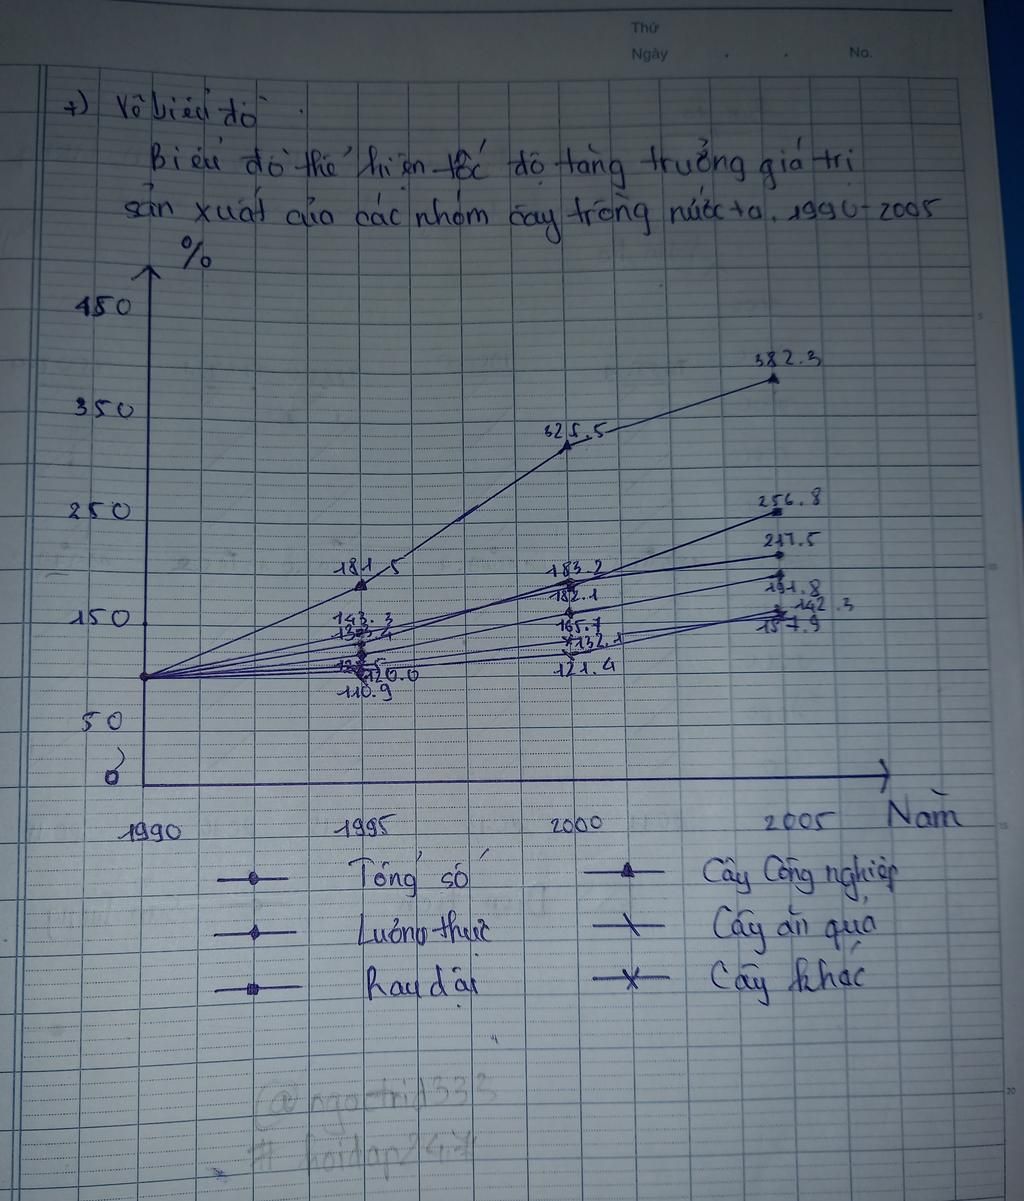 Thứ
Ngày . . No.
+) Vẽ biểu đồ
Biểu đồ thể hiện tốc độ tăng trưởng giá trị
sản xuất của các nhóm cây trồng nước ta, 1990-2005
%
450
382.3
350
325.5
250
256.8
217.5
181.5
183.2
182.1
191.8
150
143.3
133.4
165.7
142.3
132.1
157.9
120.0
121.4
110.9
50
0
1990 1995 2000 2005 Năm
Tổng số Cây Công nghiệp
Lương thực Cây ăn quả
Rau đậu Cây khác
@ngoctrid333
# hoidap247